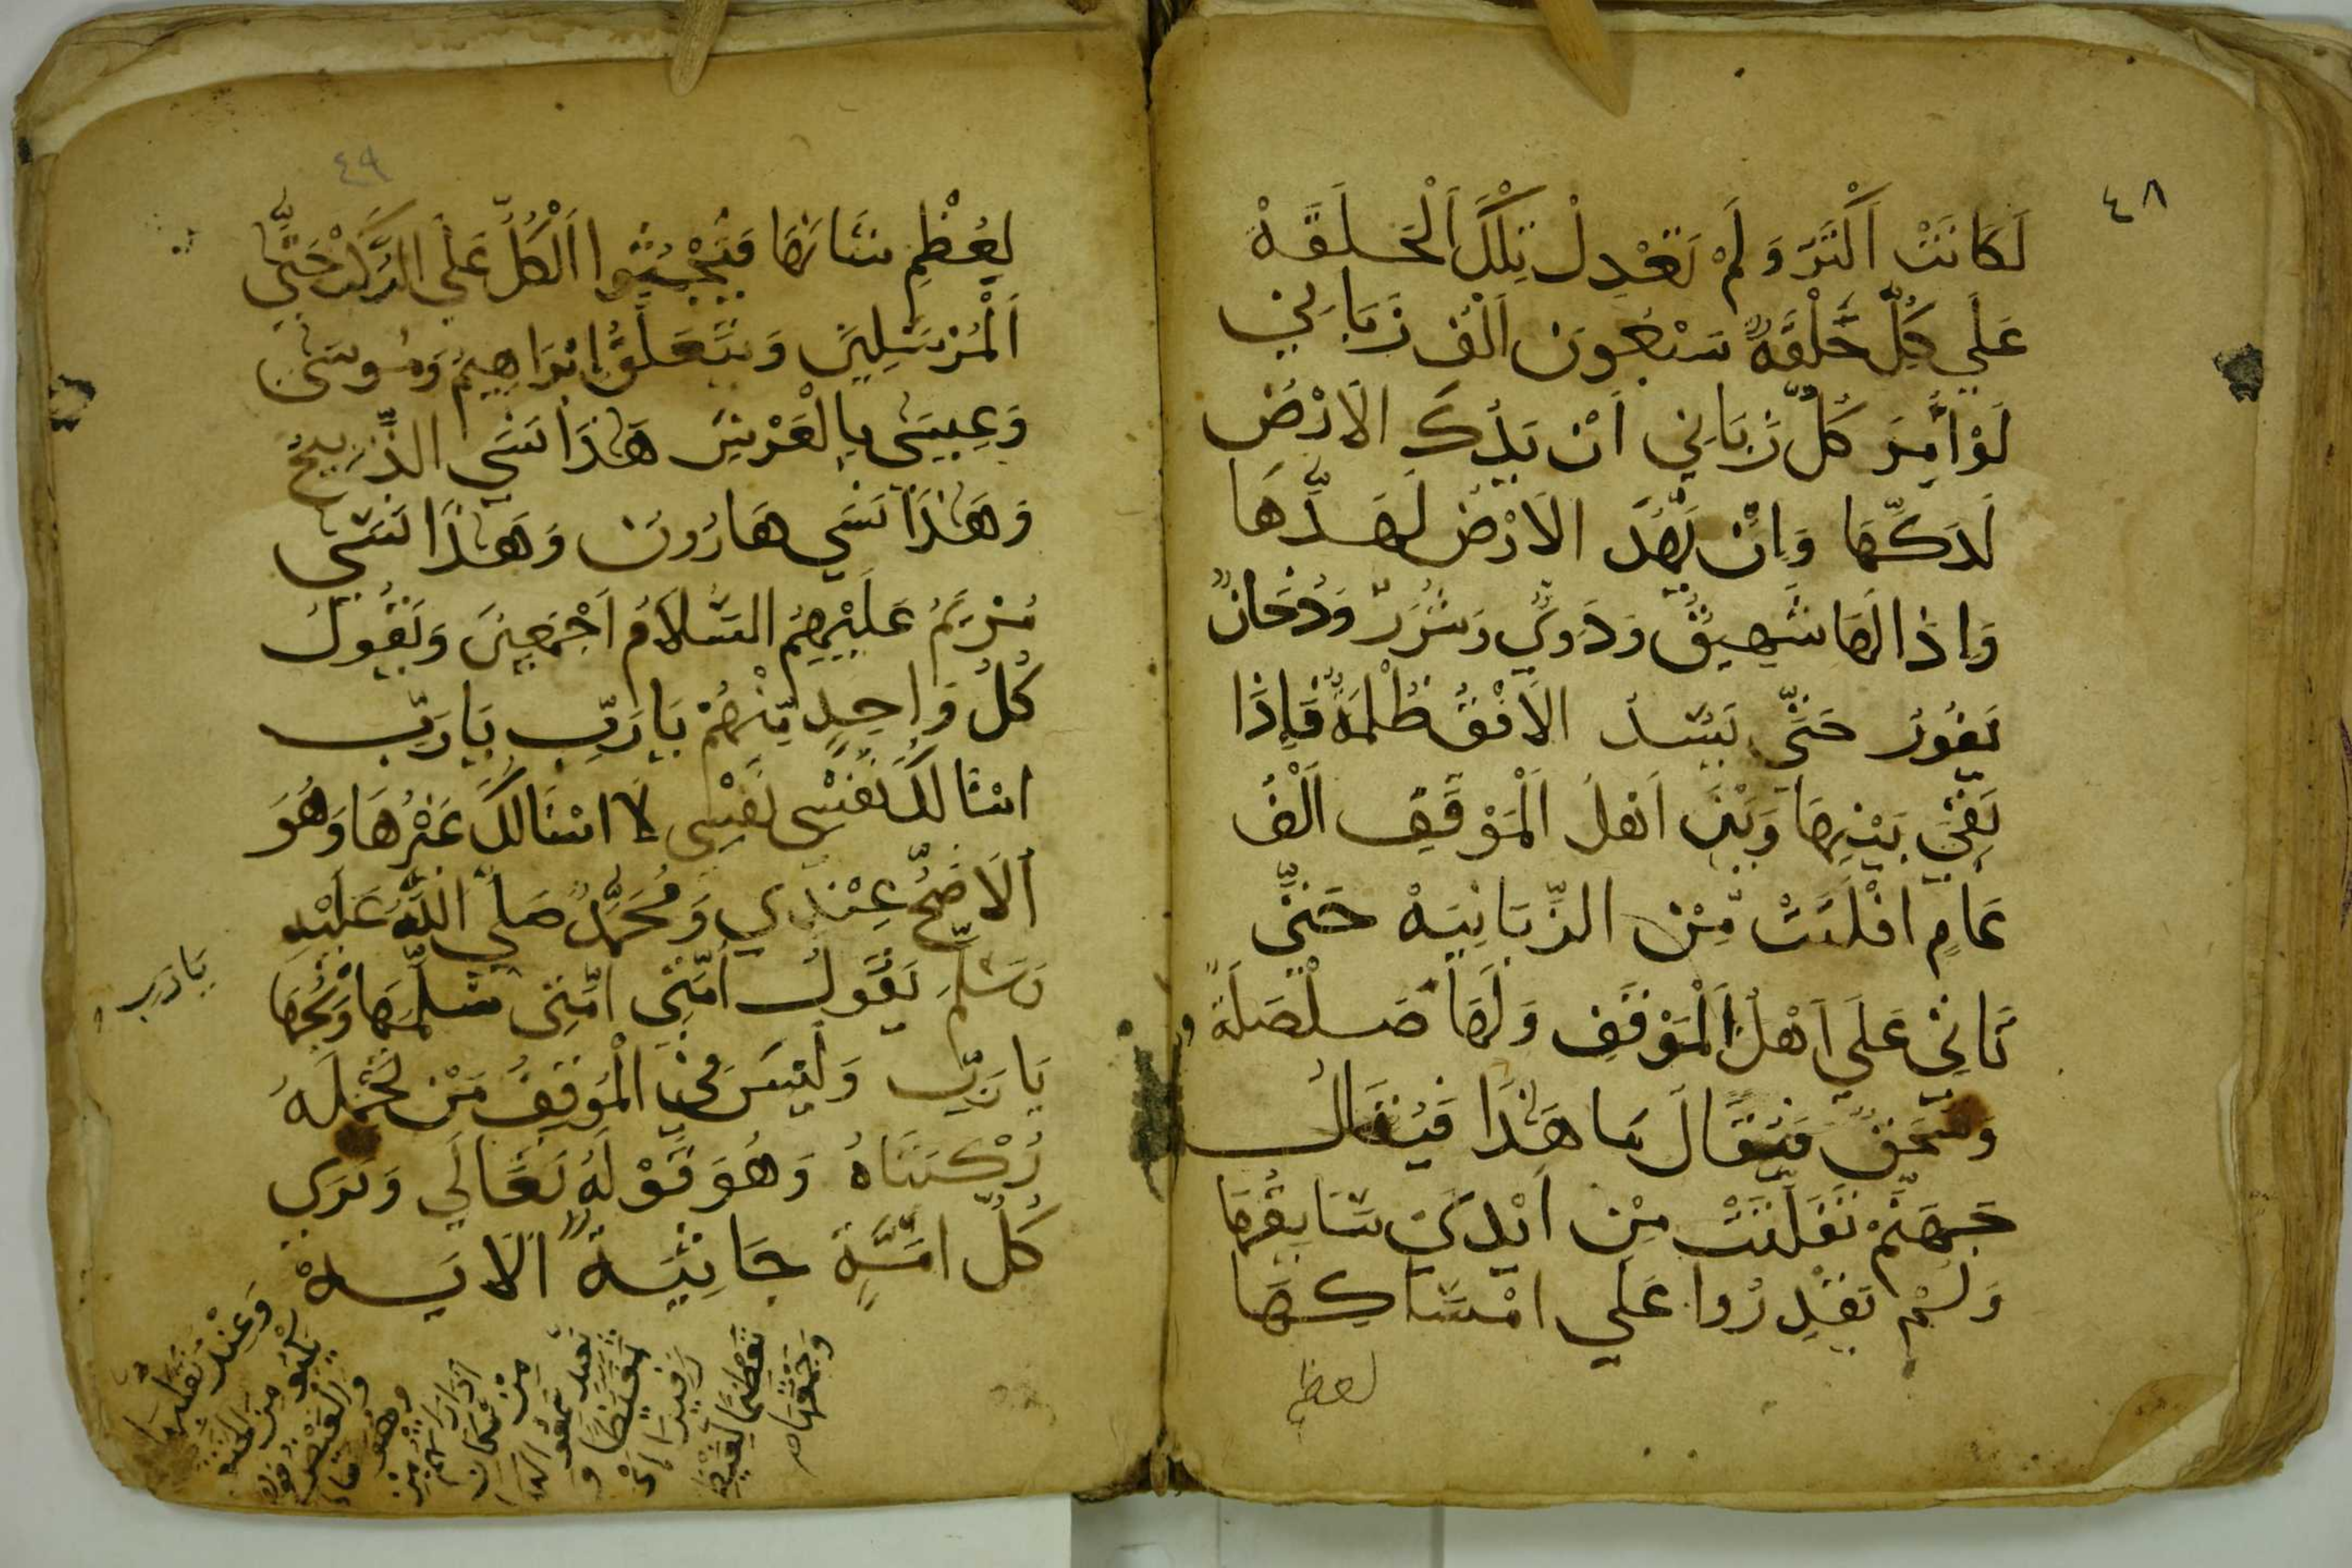 ٤٨
لَكَانَتْ اَكْثَرَ وَلَمْ تَعْدِلْ تِلْكَ اَلْحَلَقَةْ
عَلَي كُلِّ حَلْقَةٍ سَبْعُونَ اَلْفَ زَبَانِي
لَوْ اُمِرَ كُلُّ زَبَانِي اَنْ يَدُكَ الاَرْضَ
لَدَكَّهَا وَاِنْ يَهُدَّ الاَرْضَ لَهَدَّهَا
وَاِذَا لَهَا شَهِيقٌ وَدَوِيٌّ وَشَرَرٌ وَدُخَانٌ
تَفُورُ حَتَّي يَسُدَ الاَفْقَ ظُلْمَةً فَاِذَا
بَقِيَ بَيْنِهَا وَبَيْنَ اَهْلَ اَلْمَوْقَفِ اَلْفُ
عَامٍ افْلَتَتْ مِّنْ الزَّبَانِيَهْ حَتَّي
تَاتِي عَلَي اَهْلَ اَلْمَوْقَفِ وَلَهَا صَلْصَلَةً و
فَيُقَالَ مَا هَذَا فَيُقَالُ
جَهَنَّمْ تَفَلَتَتْ مِنْ اَيْدِي سَايِقُهَا
وَلَمْ يَقْدِرُوا عَلَي امْسَاكِهَا
لعظم
٤٩
لِعُظْمِ شَانِهَا فَيَجْثُوا اَلْكُلُّ عَلَي الرُّكَبْ حَتَّي
اَلْمُرْسَلِينَ وَيَتَعَلَّقُ اِبْرَاهِيمُ وَمُوسَي
وَعِيسَي بِالْعَرْشِ هَذَا نَسَي الذَّبِيحُ
وَهَذَا نَسَي هَارُونَ وَهَذَا نَسَي
مَرْيَمُ عَلَيْهِمُ السَّلاَمُ اَجْمَعِينَ وَيَقُولُ
كُلُ وَاحِدٍ مِّنْهُمْ يَارَبِّ يَارَبِّ
اسْالُكَ نَفْسِي نَفْسِي لاَ اسْالُكَ غَيْرُهَا وَهُوَ
اَلاَصَحُّ عِنْدِي وَمُحَمَّدٌ صَلَي اللَّهُ عَلَيْهِ
وَسَلَّمِ يَقُولُ اُمَّتِي اُمَّتِي سَلِّمْهَا وَنَجِّهَا
يَارَبِ
يَا رَبِّ وَلَيْسَ فِي الْمَوْقِفُ مَنْ تَحْمِلَهُ
رُكْبَتَاهُ وَهُوَ قَوْلَهُ تَعَالَي وَتَرَي
كُلَّ اُمَّةٍ جَاثِيَةً اَلايَهْ